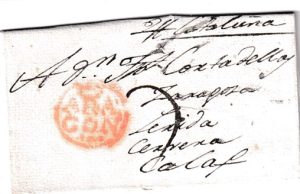 Cataluna
A Dn Josef Cortadellas
Zaragoza
Lerida
Cervera
Calaf
ARA
GON